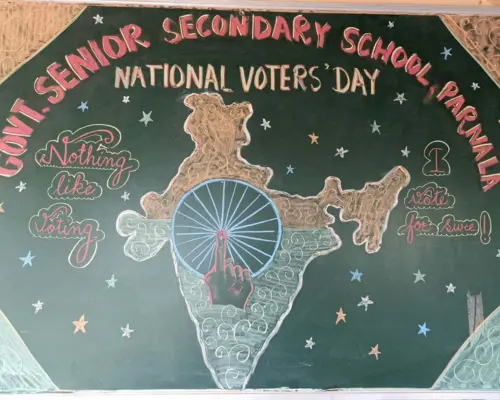 GOVT. SENIOR SECONDARY SCHOOL, PARNALA
NATIONAL VOTERS' DAY
Nothing
like
Voting
I
vote
for sure!